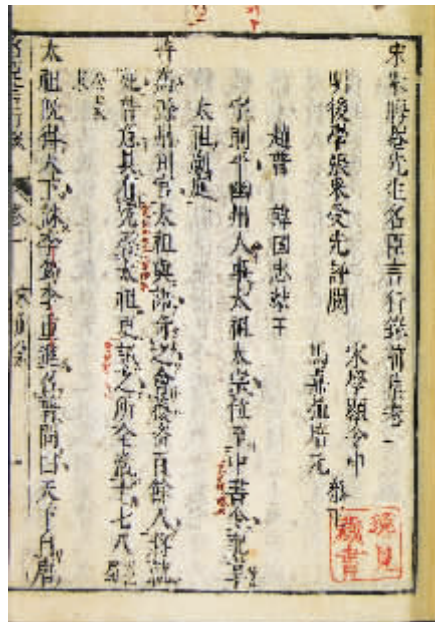 宋朱晦菴先生名臣言行錄前集卷一
明後學張采受先評閱
宋學顯令申
馬嘉植培元
趙普 韓國忠獻王
字則平幽州人事太祖太宗位至中書令配享
太祖廟庭
普為滁州判官太祖與語奇之會獲盗百餘人將就
死普意其有冤啓太祖更訊之所全活十七八
太祖既得天下誅李筠李重進召普問曰天下自唐
藏書